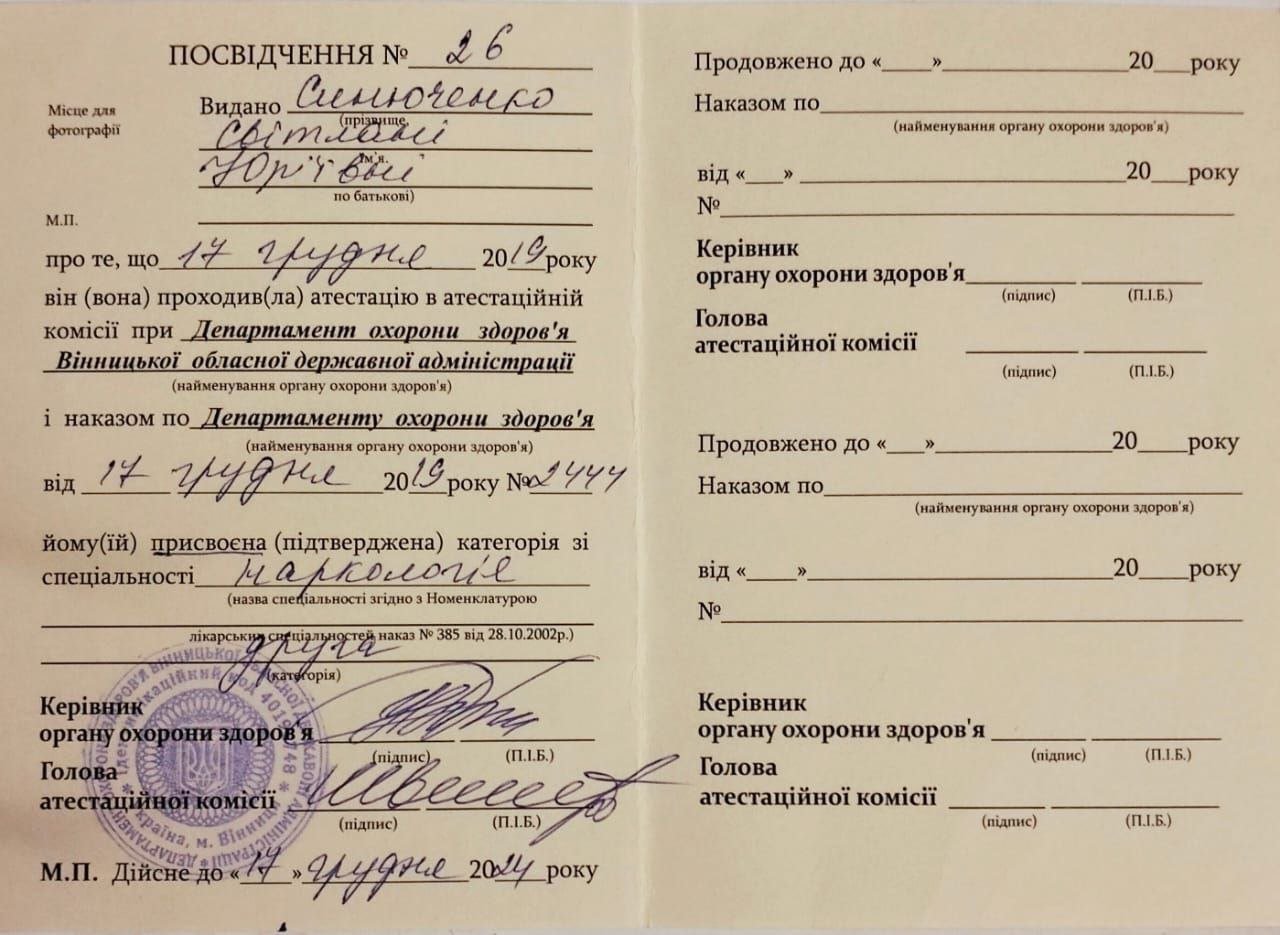 ПОСВІДЧЕННЯ № 26
Місце для фотографії
Видано Синюченко
(прізвище,
Світлані
ім'я,
Юр'ївні
по батькові)
М.П.
про те, що 17 грудня 2019 року
він (вона) проходив(ла) атестацію в атестаційній
комісії при Департамент охорони здоров'я
Вінницької обласної державної адміністрації
(найменування органу охорони здоров'я)
і наказом по Департаменту охорони здоров'я
(найменування органу охорони здоров'я)
від 17 грудня 2019 року № 2444
йому(їй) присвоєна (підтверджена) категорія зі
спеціальності наркологія
(назва спеціальності згідно з Номенклатурою
лікарських спеціальностей наказ № 385 від 28.10.2002р.)
друга
(категорія)
Керівник
органу охорони здоров'я
(підпис) (П.І.Б.)
Голова
атестаційної комісії
(підпис) (П.І.Б.)
М.П. Дійсне до «17» грудня 2024 року
Ідентифікаційний код
Україна, м. Вінниця
Продовжено до «____»____ 20___року
Наказом по
(найменування органу охорони здоров'я)
від «___» ____ 20___року
№
Керівник
органу охорони здоров'я
(підпис) (П.І.Б.)
Голова
атестаційної комісії
(підпис) (П.І.Б.)
Продовжено до «___»____ 20____року
Наказом по
(найменування органу охорони здоров'я)
від «____»____ 20____року
№
Керівник
органу охорони здоров'я
(підпис) (П.І.Б.)
Голова
атестаційної комісії
(підпис) (П.І.Б.)